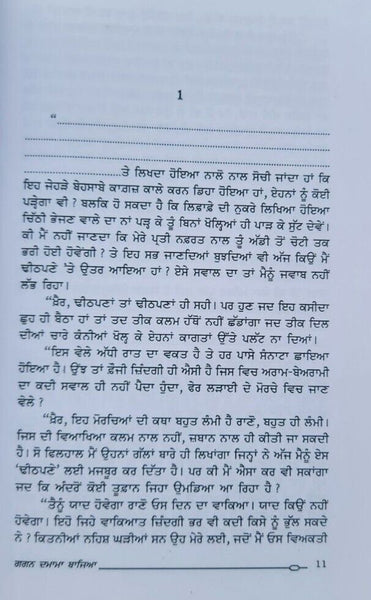 1
“........................................................................
........................................................................
........................................................................
....................ਤੇ ਲਿਖਦਾ ਹੋਇਆ ਨਾਲੋ ਨਾਲ ਸੋਚੀ ਜਾਂਦਾ ਹਾਂ ਕਿ
ਇਹ ਜੇਹੜੇ ਬੇਹਸਾਬੇ ਕਾਗ਼ਜ਼ ਕਾਲੇ ਕਰਨ ਡਿਹਾ ਹੋਇਆ ਹਾਂ, ਏਹਨਾਂ ਨੂੰ ਕੋਈ
ਪੜ੍ਹੇਗਾ ਵੀ ? ਬਲਕਿ ਹੋ ਸਕਦਾ ਹੈ ਕਿ ਲਿਫ਼ਾਫ਼ੇ ਦੀ ਨੁਕਰੇ ਲਿਖਿਆ ਹੋਇਆ
ਚਿੱਠੀ ਭੇਜਣ ਵਾਲੇ ਦਾ ਨਾਂ ਪੜ੍ਹ ਕੇ ਤੂੰ ਬਿਨਾਂ ਖੋਲ੍ਹਿਆਂ ਹੀ ਪਾੜ ਕੇ ਸੁੱਟ ਦੇਵੇਂ।
ਕੀ ਮੈਂ ਨਹੀਂ ਜਾਣਦਾ ਕਿ ਮੇਰੇ ਪ੍ਰਤੀ ਨਫ਼ਰਤ ਨਾਲ ਤੂੰ ਅੱਡੀ ਤੋਂ ਚੋਟੀ ਤਕ
ਭਰੀ ਹੋਈ ਹੋਵੇਂਗੀ ? ਤੇ ਇਹ ਸਭ ਜਾਣਦਿਆਂ ਬੁਝਦਿਆਂ ਵੀ ਅੱਜ ਕਿਉਂ ਮੈਂ
ਢੀਠਪਣੇ 'ਤੇ ਉਤਰ ਆਇਆ ਹਾਂ ? ਏਸੇ ਸਵਾਲ ਦਾ ਤਾਂ ਮੈਨੂੰ ਜਵਾਬ ਨਹੀਂ
ਲੱਭ ਰਿਹਾ।
“ਖ਼ੈਰ, ਢੀਠਪਣਾਂ ਤਾਂ ਢੀਠਪਣਾਂ ਹੀ ਸਹੀ। ਪਰ ਹੁਣ ਜਦ ਇਹ ਕਸੀਦਾ
ਛੁਹ ਹੀ ਬੈਠਾ ਹਾਂ ਤਾਂ ਤਦ ਤੀਕ ਕਲਮ ਹੱਥੋਂ ਨਹੀਂ ਛੱਡਾਂਗਾ ਜਦ ਤੀਕ ਦਿਲ
ਦੀਆਂ ਚਾਰੇ ਕੰਨੀਆਂ ਖੋਲ੍ਹ ਕੇ ਏਹਨਾਂ ਕਾਗਤਾਂ ਉੱਤੇ ਪਲੱਟ ਨਾ ਦਿਆਂ।
“ਇਸ ਵੇਲੇ ਅੱਧੀ ਰਾਤ ਦਾ ਵਕਤ ਹੈ ਤੇ ਹਰ ਪਾਸੇ ਸੰਨਾਟਾ ਛਾਇਆ
ਹੋਇਆ ਹੈ। ਉਂਝ ਤਾਂ ਫ਼ੌਜੀ ਜ਼ਿੰਦਗੀ ਹੀ ਐਸੀ ਹੈ ਜਿਸ ਵਿਚ ਅਰਾਮ-ਬੇਅਰਾਮੀ
ਦਾ ਕਦੀ ਸਵਾਲ ਹੀ ਨਹੀਂ ਪੈਦਾ ਹੁੰਦਾ, ਫੇਰ ਲੜਾਈ ਦੇ ਮੋਰਚੇ ਵਿਚ ਜਾਣ
ਵੇਲੇ ?
“ਖ਼ੈਰ, ਇਹ ਮੋਰਚਿਆਂ ਦੀ ਕਥਾ ਬਹੁਤ ਲੰਮੀ ਹੈ ਰਾਣੋ, ਬਹੁਤ ਹੀ ਲੰਮੀ।
ਜਿਸ ਦੀ ਵਿਆਖਿਆ ਕਲਮ ਨਾਲ ਨਹੀਂ, ਜ਼ਬਾਨ ਨਾਲ ਹੀ ਕੀਤੀ ਜਾ ਸਕਦੀ
ਹੈ। ਸੋ ਫਿਲਹਾਲ ਮੈਂ ਉਹਨਾਂ ਗੱਲਾਂ ਬਾਰੇ ਹੀ ਲਿਖਾਂਗਾ ਜਿਨ੍ਹਾਂ ਨੇ ਅੱਜ ਮੈਨੂੰ ਏਸ
'ਢੀਠਪਣੇ' ਲਈ ਮਜਬੂਰ ਕਰ ਦਿੱਤਾ ਹੈ। ਪਰ ਕੀ ਮੈਂ ਐਸਾ ਕਰ ਵੀ ਸਕਾਂਗਾ
ਜਦ ਕਿ ਅੰਦਰੋਂ ਕੋਈ ਤੂਫ਼ਾਨ ਜਿਹਾ ਉਮਡਿਆ ਆ ਰਿਹਾ ਹੈ ?
“ਤੈਨੂੰ ਯਾਦ ਹੋਵੇਗਾ ਰਾਣੋ ਓਸ ਦਿਨ ਦਾ ਵਾਕਿਆ। ਯਾਦ ਕਿਉਂ ਨਹੀਂ
ਹੋਵੇਗਾ। ਇਹੋ ਜਿਹੇ ਵਾਕਿਆਤ ਜ਼ਿੰਦਗੀ ਭਰ ਵੀ ਕਦੀ ਕਿਸੇ ਨੂੰ ਭੁੱਲ ਸਕਦੇ
ਨੇ ? ਕਿਤਨੀਆਂ ਨਹਿਸ਼ ਘੜੀਆਂ ਸਨ ਉਹ ਮੇਰੇ ਲਈ, ਜਦੋਂ ਮੈਂ ਓਸ ਵਿਅਕਤੀ
ਗਗਨ ਦਮਾਮਾ ਬਾਜਿਆ 11